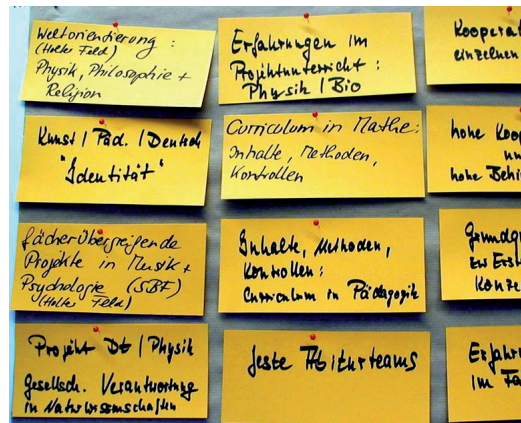 Weltorientierung :
(Holter Feld)
Physik, Philosophie +
Religion
Kunst / Päd. / Deutsch
"Identität"
fächerübergreifende
Projekte in Musik +
Psychologie (SBF)
(Holter Feld)
Projekt Dt / Physik
gesellsch. Verantwortung
in Naturwissenschaften
Erfahrungen im
Projektunterricht :
Physik / Bio
Curriculum in Mathe:
Inhalte, Methoden,
Kontrollen
Inhalte, Methoden,
Kontrollen :
Curriculum in Pädagogik
feste Abiturteams
einzelnen
hohe
hohe
im